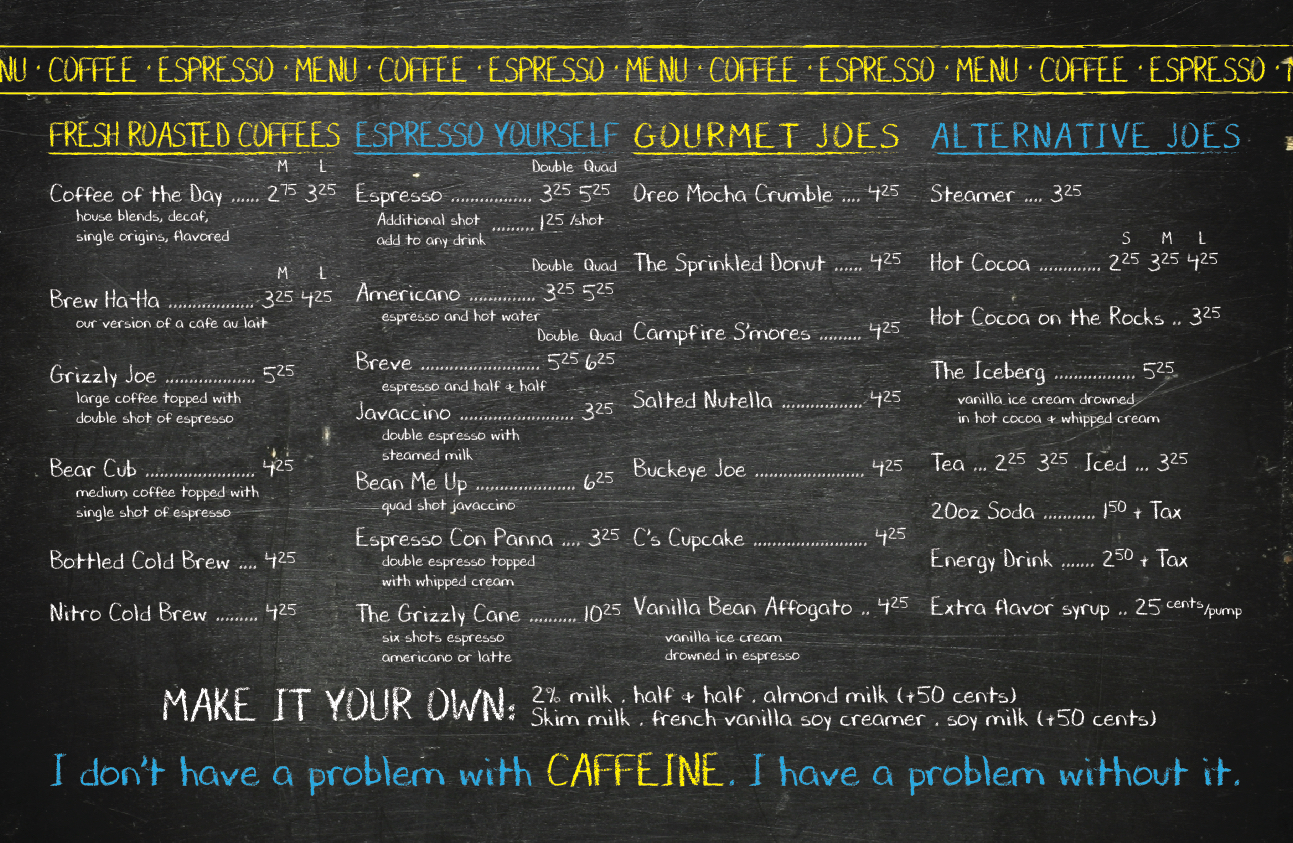 NU · COFFEE · ESPRESSO · MENU · COFFEE · ESPRESSO · MENU · COFFEE · ESPRESSO · MENU · COFFEE · ESPRESSO ·
FRESH ROASTED COFFEES
M L
Coffee of the Day ...... 2.75 3.25
house blends, decaf,
single origins, flavored
M L
Brew Ha-Ha .................. 3.25 4.25
our version of a cafe au lait
Grizzly Joe .................. 5.25
large coffee topped with
double shot of espresso
Bear Cub ...................... 4.25
medium coffee topped with
single shot of espresso
Bottled Cold Brew .... 4.25
Nitro Cold Brew ......... 4.25
ESPRESSO YOURSELF
Double Quad
Espresso ................. 3.25 5.25
Additional shot ......... 1.25 /shot
add to any drink
Double Quad
Americano .............. 3.25 5.25
espresso and hot water
Double Quad
Breve ......................... 5.25 6.25
espresso and half + half
Javaccino ....................... 3.25
double espresso with
steamed milk
Bean Me Up .................... 6.25
quad shot javaccino
Espresso Con Panna .... 3.25
double espresso topped
with whipped cream
The Grizzly Cane .......... 10.25
six shots espresso
americano or latte
GOURMET JOES
Oreo Mocha Crumble .... 4.25
The Sprinkled Donut ...... 4.25
Campfire S'mores ......... 4.25
Salted Nutella ................. 4.25
Buckeye Joe ...................... 4.25
C's Cupcake ....................... 4.25
Vanilla Bean Affogato .. 4.25
vanilla ice cream
drowned in espresso
ALTERNATIVE JOES
Steamer .... 3.25
S M L
Hot Cocoa ............. 2.25 3.25 4.25
Hot Cocoa on the Rocks .. 3.25
The Iceberg ................ 5.25
vanilla ice cream drowned
in hot cocoa + whipped cream
Tea ... 2.25 3.25 Iced ... 3.25
20oz Soda ........... 1.50 + Tax
Energy Drink ....... 2.50 + Tax
Extra flavor syrup .. 25 cents/pump
MAKE IT YOUR OWN:
2% milk . half + half . almond milk (+50 cents)
Skim milk . french vanilla soy creamer . soy milk (+50 cents)
I don't have a problem with CAFFEINE. I have a problem without it.